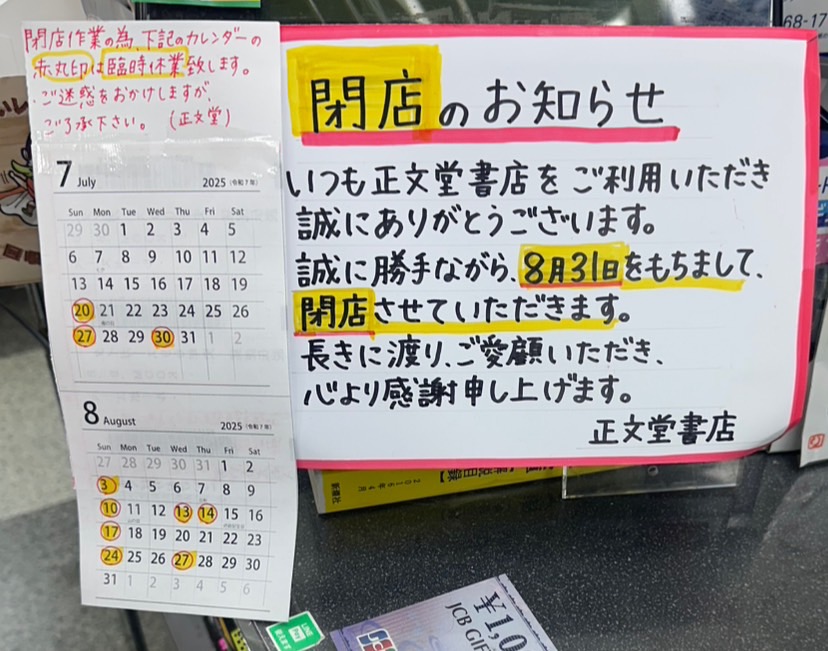 閉店作業の為、下記のカレンダーの
赤丸印は臨時休業致します。
ご迷惑をおかけしますが、
ご了承下さい。 (正文堂)
7 July 2025 (令和7年)
Sun Mon Tue Wed Thu Fri Sat
29 30 1 2 3 4 5
6 7 8 9 10 11 12
13 14 15 16 17 18 19
20 21 22 23 24 25 26
27 28 29 30 31 1 2
8 August 2025 (令和7年)
Sun Mon Tue Wed Thu Fri Sat
27 28 29 30 31 1 2
3 4 5 6 7 8 9
10 11 12 13 14 15 16
17 18 19 20 21 22 23
24 25 26 27 28 29 30
31 1 2 3 4 5 6
閉店のお知らせ
いつも正文堂書店をご利用いただき
誠にありがとうございます。
誠に勝手ながら、8月31日をもちまして、
閉店させていただきます。
長きに渡り、ご愛顧いただき、
心より感謝申し上げます。
正文堂書店
68-17
新潮社
LINE
Pay
¥1,0
JCB GIF
JCB